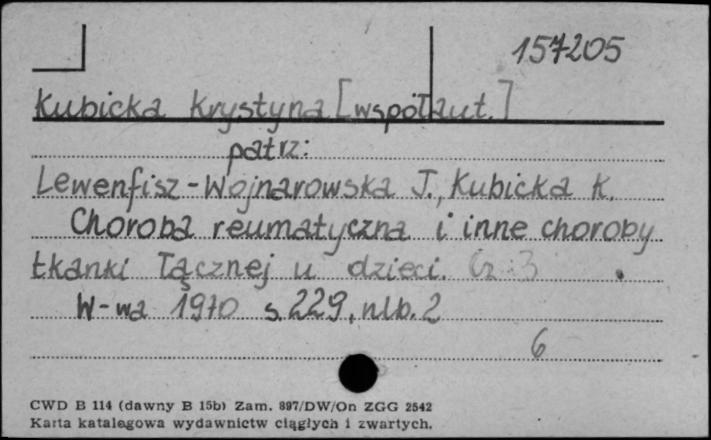 157205
Kubicka Krystyna [współaut.]
patrz:
Lewenfisz-Wojnarowska J., Kubicka K.
Choroba reumatyczna i inne choroby
tkanki łącznej u dzieci. Cz. 3
W-wa 1970 s. 229, nlb. 2
6
CWD B 114 (dawny B 15b) Zam. 897/DW/On ZGG 2542
Karta katalogowa wydawnictw ciągłych i zwartych.